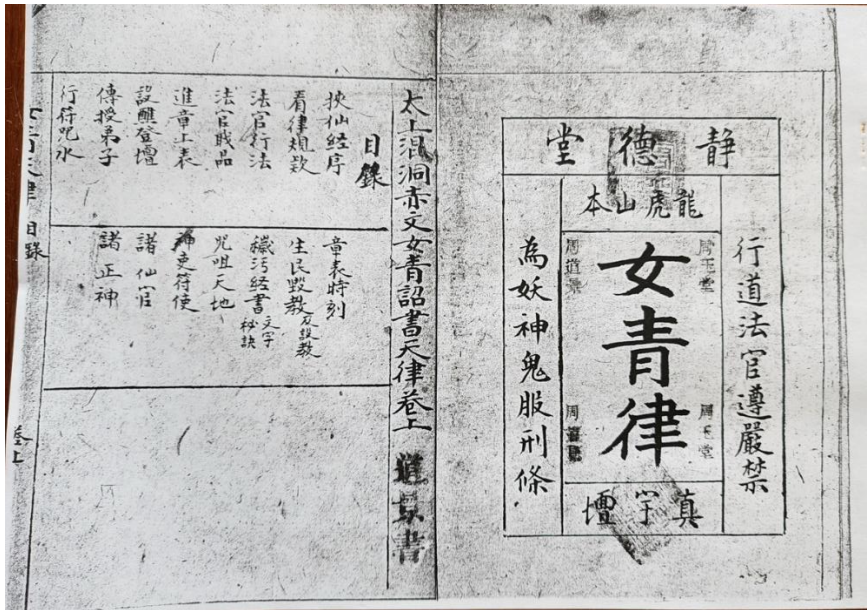 靜德堂
龍虎山本
行道法官遵嚴禁
女青律
為妖神鬼服刑條
真宇壇
周玉堂
周玉堂
周道
周道
太上混洞赤文女青詔書天律卷上
目錄
挾仙經序
看律規款
法官行法
法官職品
進章上表
設醮登壇
傳授弟子
行符咒水
章表時刻
生民毀教及設教
穢污經書文字秘訣
咒咀天地
神吏符使
諸仙官
諸正神
女青天律 目錄 卷上